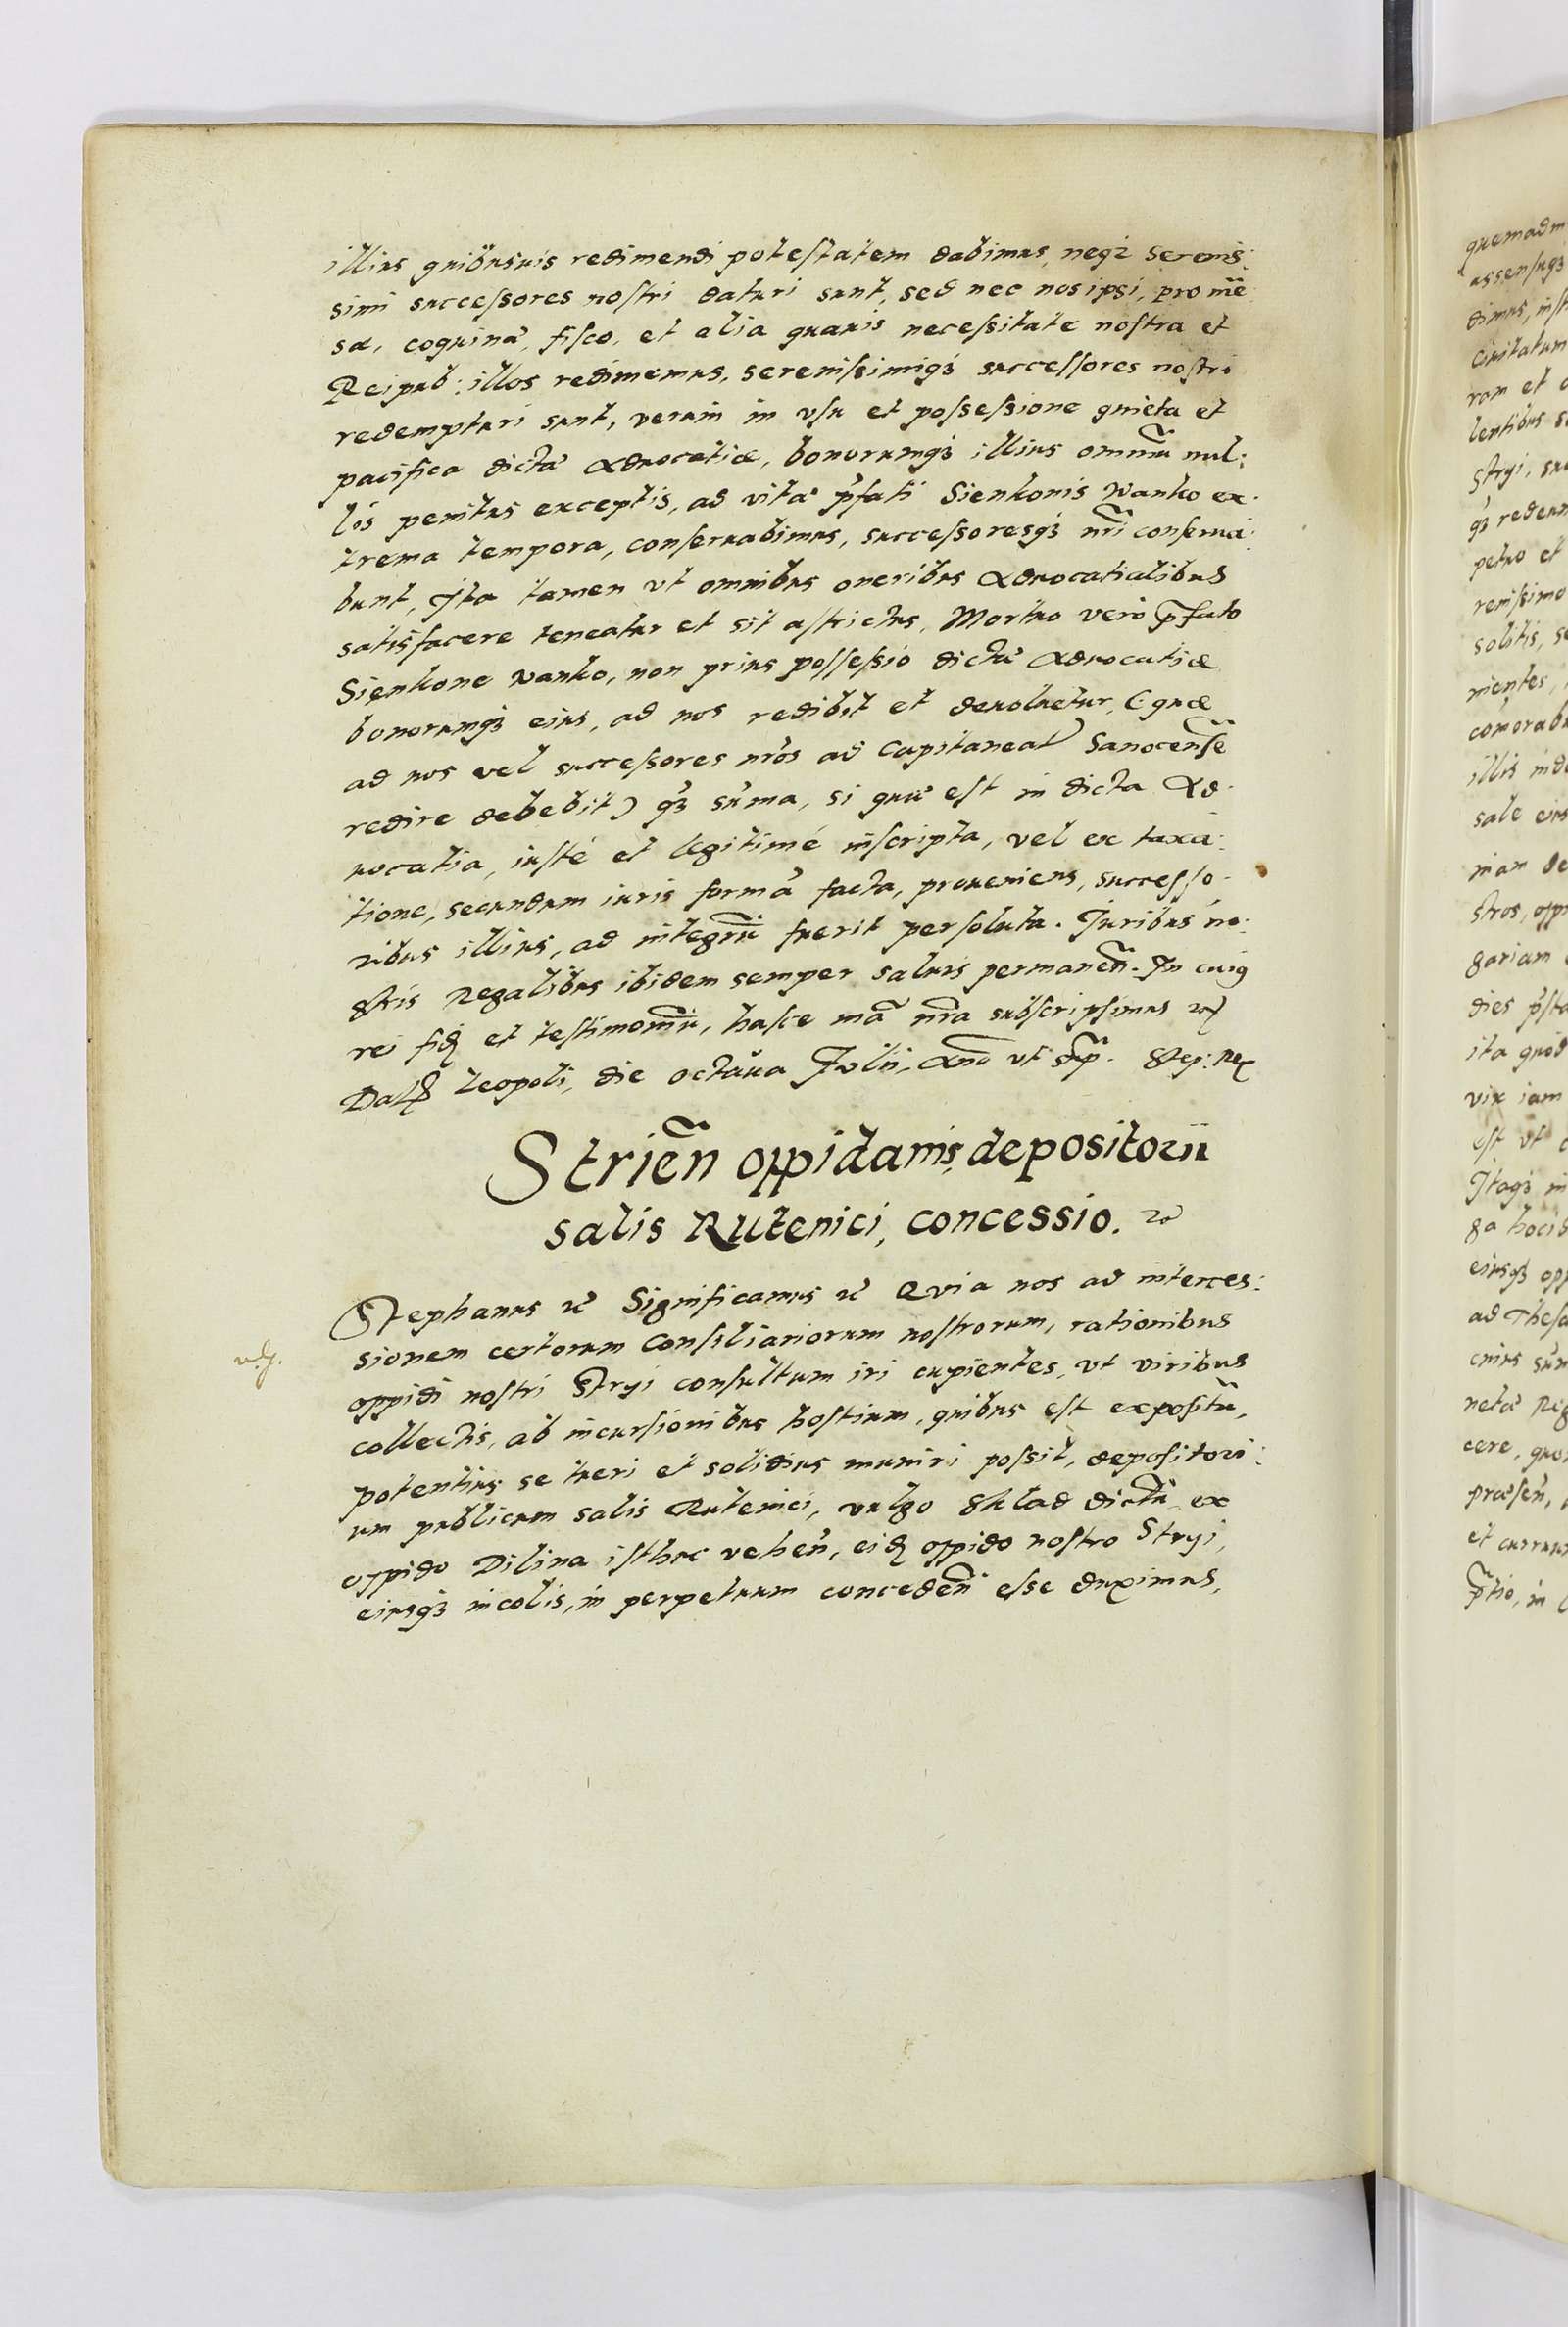 illius quibusuis redimendi potestatem dabimus, neqz Serenis:
simi successores nostri daturi sunt, sed nec nos ipsi, pro mē
sæ, coquinæ, fisco, et alia quauis necessitate nostra et
Reipub: illos redimemus, serenissimiqz successores nostri
redempturi sunt, verum in vsu et possessione quieta et
pacifica dictæ Aduocatiæ, bonorumqz illius omniū nul:
lis penitus exceptis, ad vitæ p̄fati Sienkonis Wanko ex.
trema tempora, conseruabimus, successoresqz nr̄i conserua:
bunt, Ita tamen vt omnibus oneribus Aduocatialibus
satisfacere teneatur et sit astrictus, Mortuo vero p̄fato
Sienkone Wanko, non prius possessio dictæ Aduocatiæ
bonorumqz eius, ad nos redibit et deuoluetur, (quæ
ad nos vel successores nr̄os ad Capitaneat̄ Sanocen̄se
redire debebit) qz sūma, si quæ est in dicta Ad.
uocatia, iusté et legitimé inscripta, vel ex taxa:
tione, secundum iuris formā facta, proueniens, successo.
ribus illius, ad integrū fuerit persoluta. Juribus no:
stris Regalibus ibidem semper saluis permanen̄. In cuiq
rei fid et testimoniū, hasce mā nr̄a subscripsimus
Dat Leopoli, die octaua Julii, Ano vt sup̄. Step: Rex
Strien̄ oppidanis, depositorii
salis Rutenici, concessio.
Stephanus Significamus Quia nos ad interces:
sionem certorum Consiliariorum nostrorum, rationibus
oppidi nostri Stryi consultum iri cupientes, vt viribus
collectis, ab incursionibus hostium, quibus est expositū,
potentius se tueri et solidius muniri possit, depositori:
um publicum salis Rutenici, vulgo Sklad dictū ex
oppido Dilina isthuc vehen̄, eid oppido nostro Stryi,
eiusqz incolis, in perpetuum conceden̄ esse duximus,
quemadm
assensuqz
dimus, inst
Ciuitatum
rom et
lentibus
Stryi,
qz redeun
petuo et
renissimo
solitis, se
nientes,
com̄orab
illis inde
sale eius
niam de
stros, opp
gariam
dies p̄sta
ita quod
vix iam
est vt
Itaqz in
ga hoc
eiusqz opp
ad Thesa
cuius sūm
netæ Reg
cere, quo
præsen̄,
et curruu
p̄tio, in